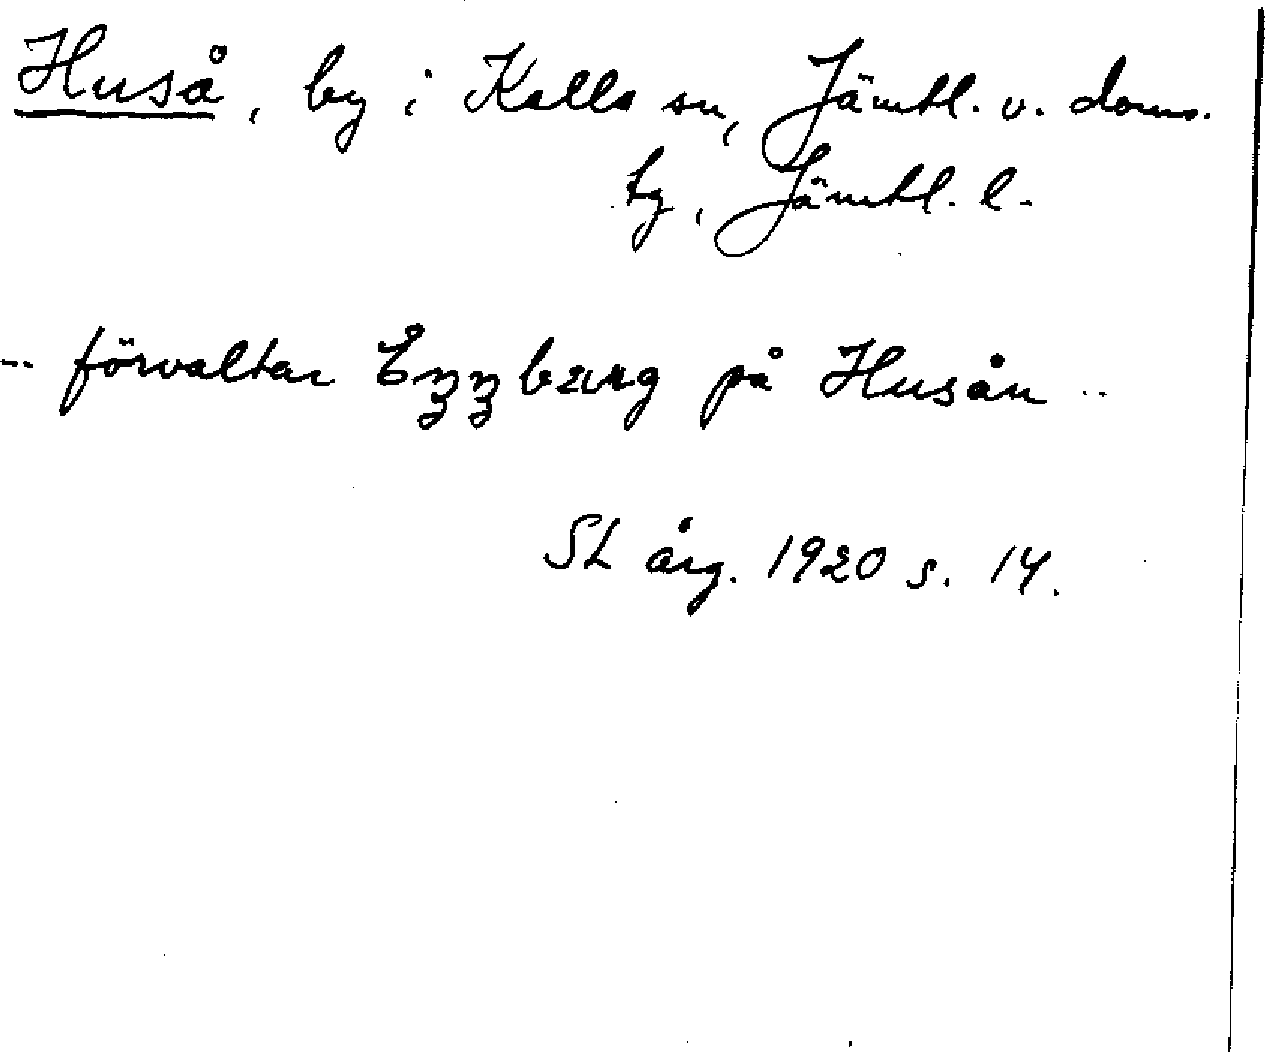 Huså, by i Kalls sn, Jämtl. v. doms.
tg, Jämtl. l.
.. förvaltar Ezzberg på Husån ..
SL årg. 1920 s. 14.